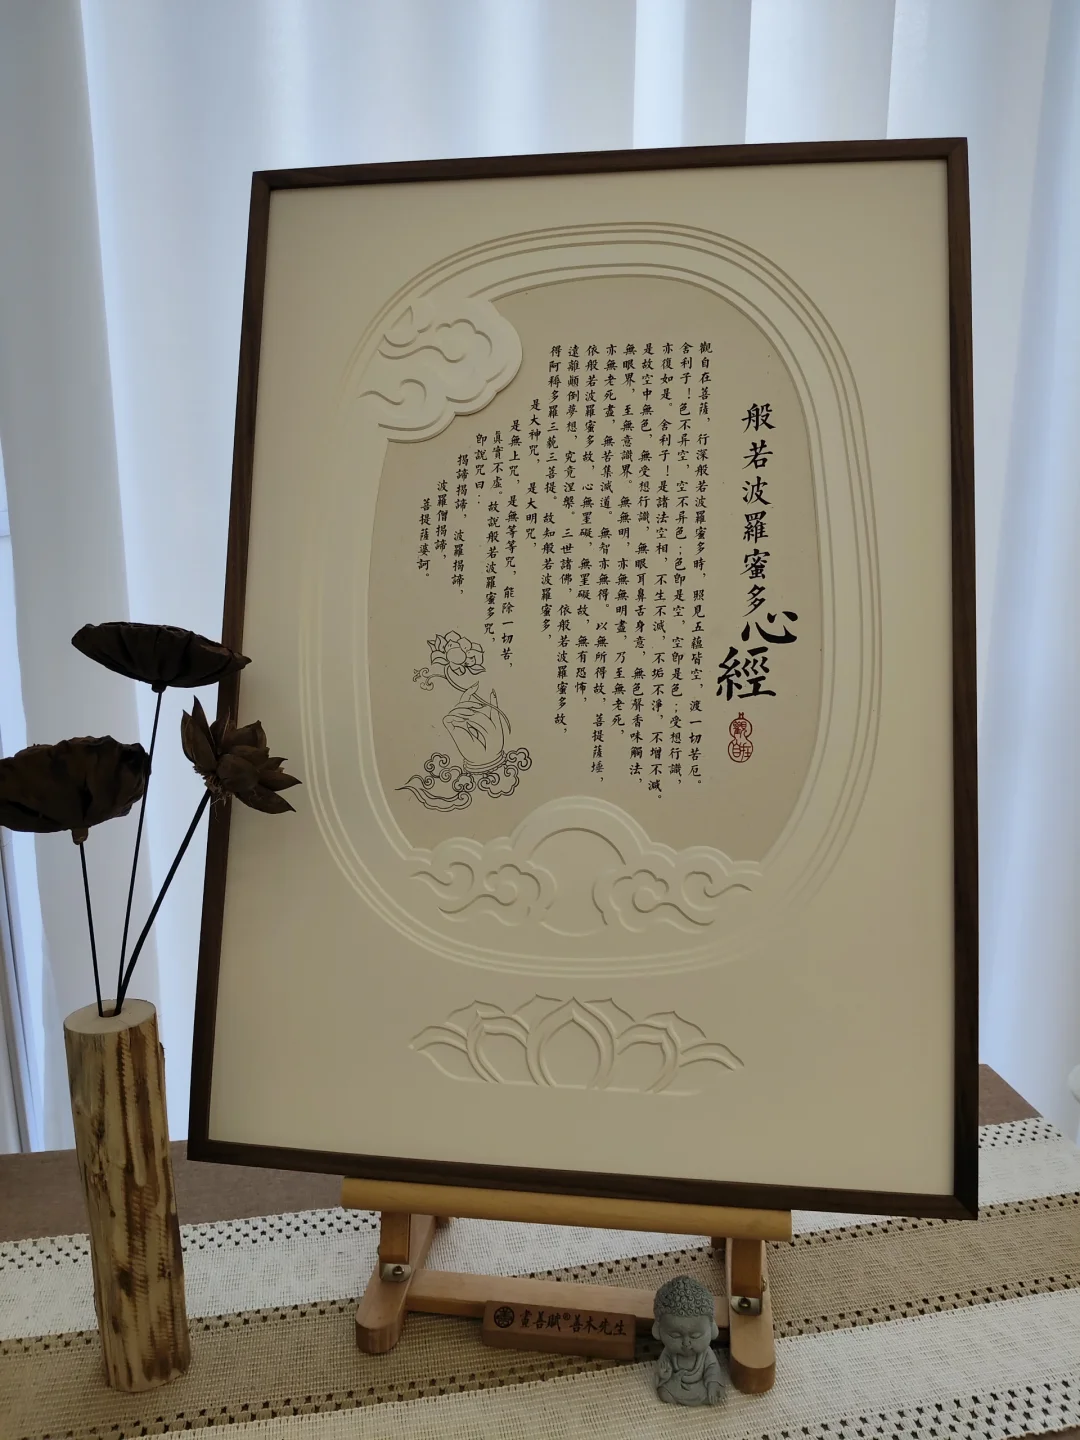 般若波羅蜜多心經
觀自在
觀自在菩薩，行深般若波羅蜜多時，照見五蘊皆空，渡一切苦厄。
舍利子！色不异空，空不异色；色即是空，空即是色；受想行識，
亦復如是。舍利子！是諸法空相，不生不滅，不垢不淨，不增不減。
是故空中無色，無受想行識，無眼耳鼻舌身意，無色聲香味觸法，
無眼界，至無意識界。無無明，亦無無明盡，乃至無老死，
亦無老死盡，無苦集滅道。無智亦無得。以無所得故，菩提薩埵，
依般若波羅蜜多故，心無罣礙，無罣礙故，無有恐怖，
遠離顛倒夢想，究竟涅槃。三世諸佛，依般若波羅蜜多故，
得阿耨多羅三藐三菩提。故知般若波羅蜜多，
是大神咒，是大明咒，
是無上咒，是無等等咒，能除一切苦，
真實不虛。故說般若波羅蜜多咒，
即說咒曰：
揭諦揭諦，波羅揭諦，
波羅僧揭諦，
菩提薩婆訶。
畫善賦®善木先生